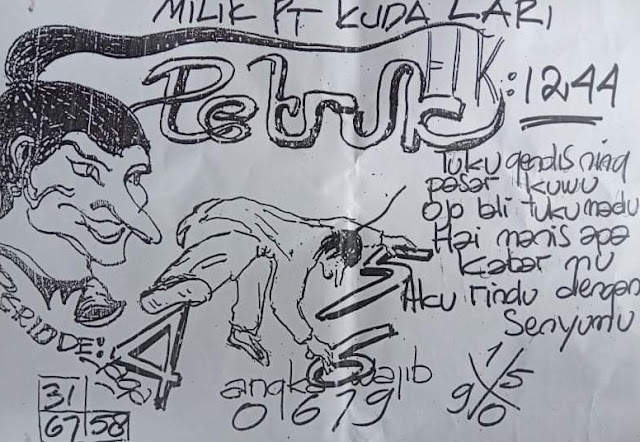 MILIK PT KUDA LARI
Petruk
EIK: 1244
Tuku gendis ning
pasar kuwu
Ojo bli tuku madu
Hai manis apa
kabar mu
Aku rindu dengan
Senyummu
PERIODE:
4
5
angka wajib
0 6 7 9
1
5
9
0
31
67 58